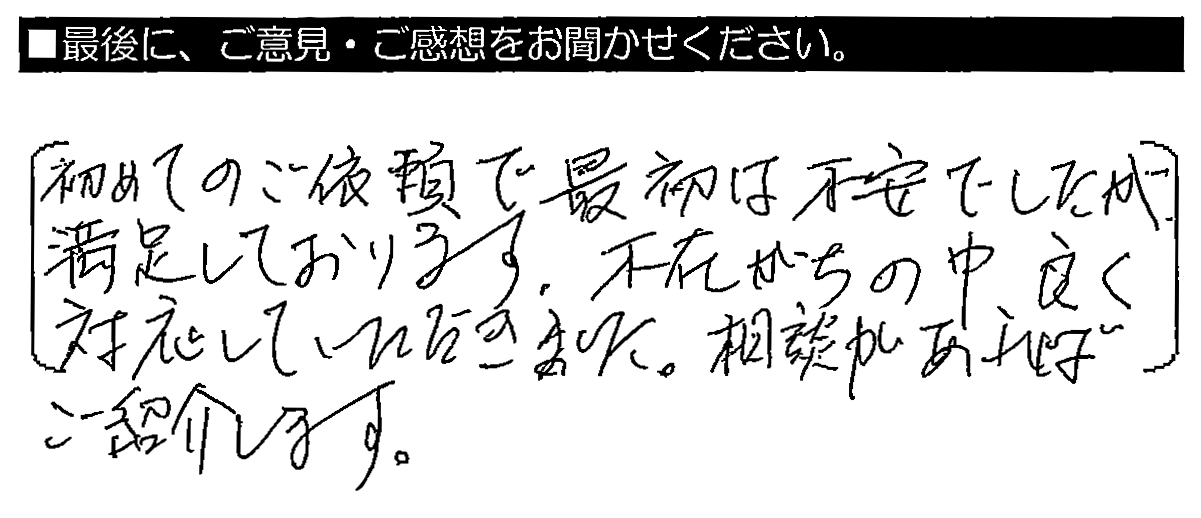 ■最後に、ご意見・ご感想をお聞かせください。
初めてのご依頼で最初は不安でしたが
満足しております。不在がちの中良く
対応していただきました。相談があれば
ご紹介します。